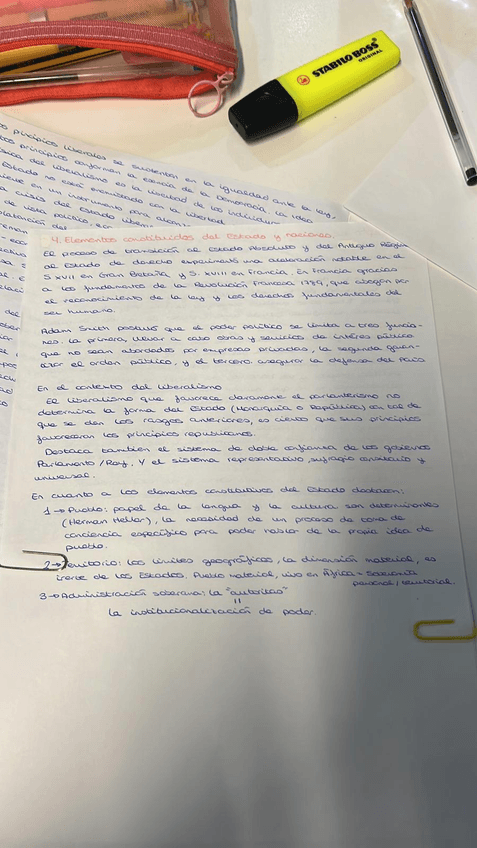 STABILO BOSS
ORIGINAL
principios liberales se sustentan en la igualdad ante la ley,
principios conforman la esencia de la democracia, la idea
del liberalismo es la libertad de los individuos
Estado no está
en un instrumento para
crisis del Estado
4. Elementos constituidos del Estado y naciones.
El proceso de transición al Estado Absoluto y del Antiguo Régimen
al Estado de derecho experimentó una aceleración notable en el
S XVII en Gran Bretaña y S. XVIII en Francia. En Francia gracias
a los fundamentos de la Revolución Francesa 1789, que abogan por
el reconocimiento de la ley y los derechos fundamentales del
ser humano.
Adam Smith postuló que el poder político se limita a tres funcio-
nes. La primera, llevar a cabo obras y servicios de interés público
que no sean abordados por empresas privadas, la segunda garan-
tizar el orden público, y el tercero asegurar la defensa del País
En el contexto del liberalismo
El liberalismo que favorece claramente el parlamentarismo no
determina la forma del Estado (Monarquía o República) con tal de
que se den los rasgos anteriores, es cierto que sus principios
favorecieron los principios republicanos.
Destaca también el sistema de doble confianza de los gobiernos
Parlamento/Rey. Y el sistema representativo, sufragio censitario y
universal.
En cuanto a los elementos constitutivos del Estado destacan:
1→Pueblo: papel de la lengua y la cultura son determinantes
(Herman Heller), la necesidad de un proceso de toma de
conciencia específico para poder hablar de la propia idea de
pueblo.
2→Territorio: los límites geográficos, la dimensión material, es
inerte de los Estados. Pueblo material, vivo en África = Soberanía
personal/territorial.
3→Administración soberana: la "autoritas"
=
la institucionalización de poder.